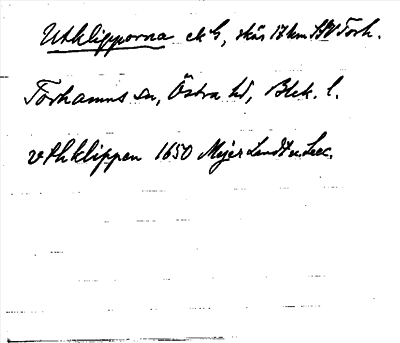 Utklipporna ek G, skär 17 km SSV Torh.
Torhamns sn, Östra hd, Blek. l.
vthklippen 1650 Mejer Landt u Lex.